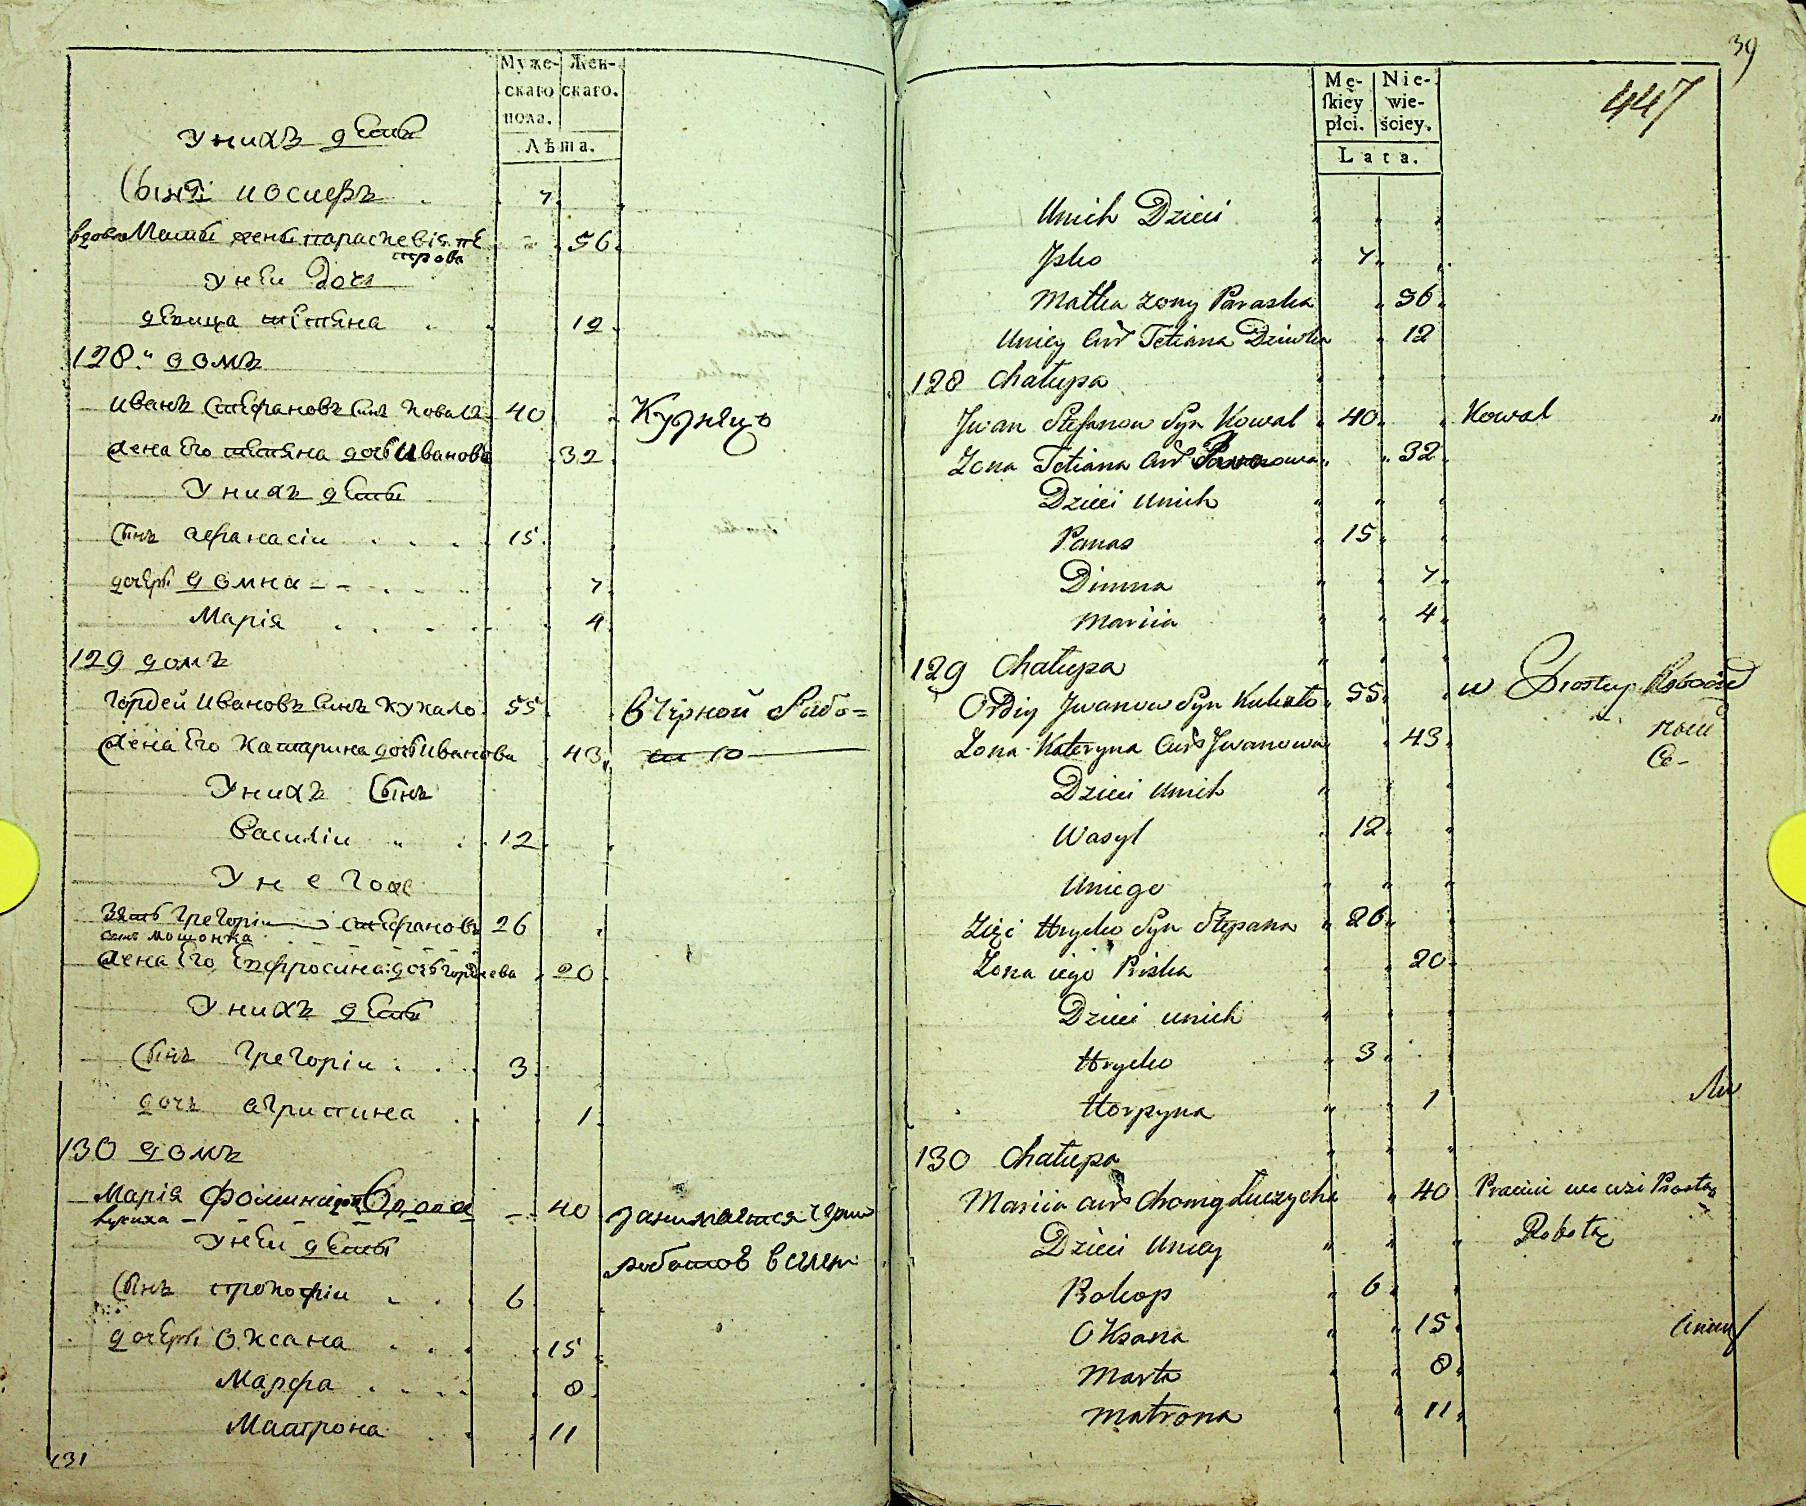 Муже-
скаго
пола.
Жен-
скаго.
Лѣта.
у нихъ дѣти
Сынъ иосифъ 7
вдова Мать жены параскевія пе
трова 56
у неи дочь
девица тетяна 12
128 домъ
иванъ Стефановъ Синъ коваль 40 Кузнецъ
жена Его тетяна дочь иванова 32
у нихъ дети
Сынъ афанасіи 15
дочери домна 7
Марія 4
129 домъ
гордей ивановъ Синъ кукало 55 в чорной рабо=
жена Его катарина дочь иванова 43
у нихъ Сынъ
василіи 12
у него же
зять григоріи стефановъ 26
синъ мошонка
жена Его Епфросина дочь гордиева 20
у нихъ дети
Сынъ григоріи 3
дочь агрипина 1
130 домъ
Марія фомина 40 занимается чорн
у неи дети
работов в
Сынъ прокофіи 6
дочери Оксана 15
Марфа 8
Матрона 11
131
39
447
Mę-
skiey
płci.
Nie-
wie-
ściey.
Lata.
Unich Dzieci
Jsko 7
Matka zony Paraska 56
Uniey Cur Tetiana Dziwka 12
128 Chałupa
Jwan Stefanow Syn Kowal 40 Kowal
Zona Tetiana Cur 32
Dzieci Unich
Panas 15
Dimna 7
Mariia 4
129 Chałupa
Ordiy Jwanow Syn Kukało 55 w Prostey
Zona Kateryna Cur Jwanowa 43
Dzieci Unich
Wasyl 12
Uniego
Zięć Hryćko Syn Stepana 26
Zona iego Priska 20
Dzieci unich
Hryćko 3
Horpyna 1
130 Chałupa
Mariia cur Chomy Łuczycha 40 Prostą
Dzieci Uniey Robotą
Prokop 6
OKsana 15
Marta 8
Matrona 11